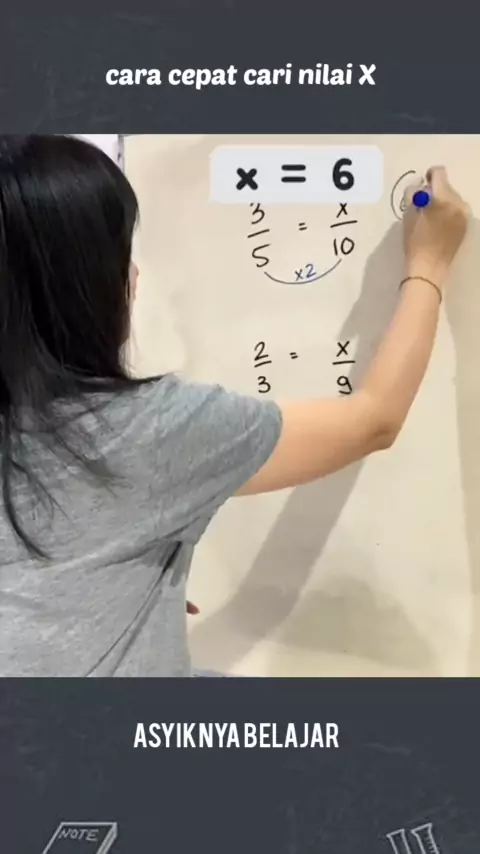 cara cepat cari nilai X
x = 6
3/5 = x/10
x2
2/3 = x/9
ASYIKNYA BELAJAR
NOTE